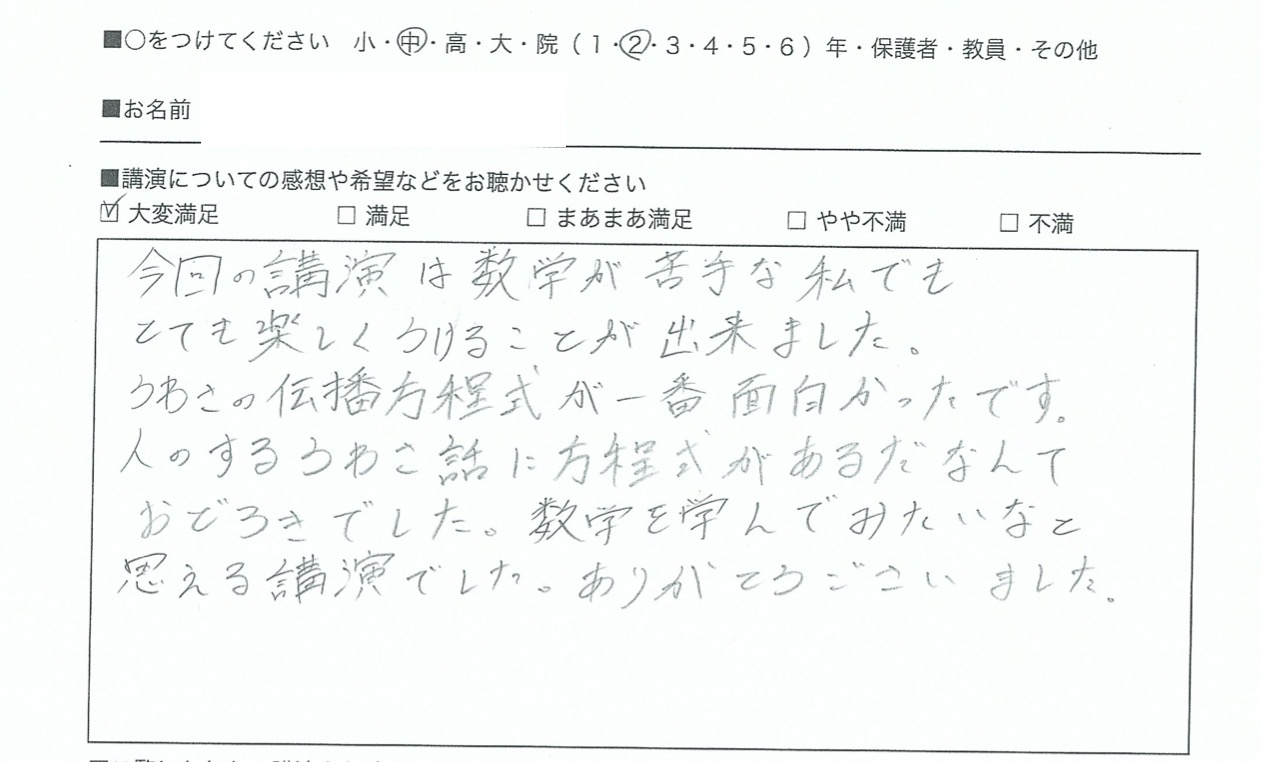 ■○をつけてください 小・中・高・大・院（1・2・3・4・5・6）年・保護者・教員・その他
■お名前
■講演についての感想や希望などをお聴かせください
☑ 大変満足 □ 満足 □ まあまあ満足 □ やや不満 □ 不満
今回の講演は数学が苦手な私でも
とても楽しくうけることが出来ました。
うわさの伝播方程式が一番面白かったです。
人のするうわさ話に方程式があるだなんて
おどろきでした。数学を学んでみたいなと
思える講演でした。ありがとうございました。